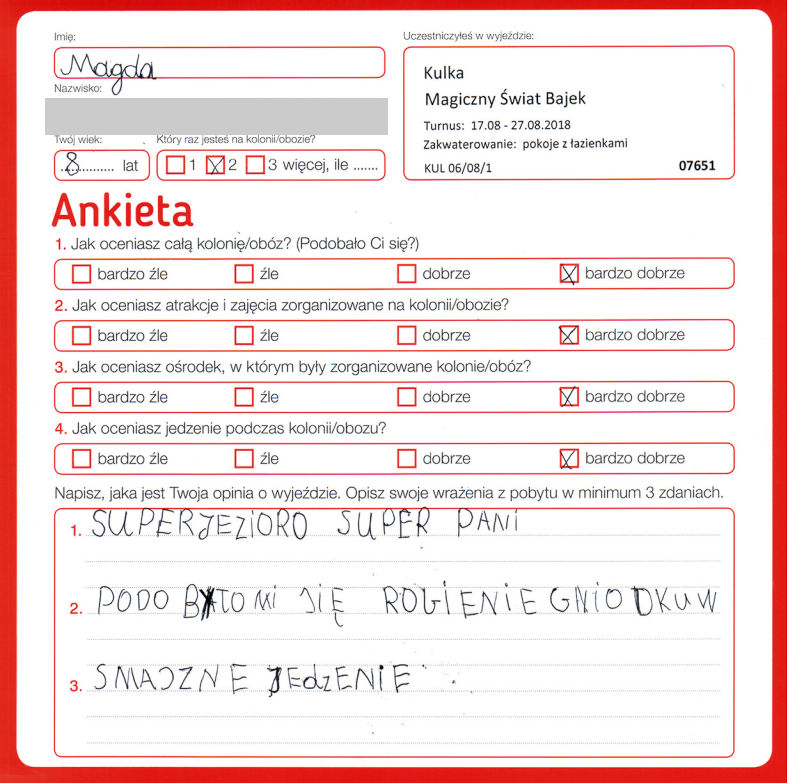 Imię:
Magda
Nazwisko:
Twój wiek:
8 lat
Który raz jesteś na kolonii/obozie?
1 2 3 więcej, ile .......
Uczestniczyłeś w wyjeździe:
Kulka
Magiczny Świat Bajek
Turnus: 17.08 - 27.08.2018
Zakwaterowanie: pokoje z łazienkami
KUL 06/08/1 07651
Ankieta
1. Jak oceniasz całą kolonię/obóz? (Podobało Ci się?)
bardzo źle źle dobrze bardzo dobrze
2. Jak oceniasz atrakcje i zajęcia zorganizowane na kolonii/obozie?
bardzo źle źle dobrze bardzo dobrze
3. Jak oceniasz ośrodek, w którym były zorganizowane kolonie/obóz?
bardzo źle źle dobrze bardzo dobrze
4. Jak oceniasz jedzenie podczas kolonii/obozu?
bardzo źle źle dobrze bardzo dobrze
Napisz, jaka jest Twoja opinia o wyjeździe. Opisz swoje wrażenia z pobytu w minimum 3 zdaniach.
1. SUPER JEZIORO SUPER PANI
2. PODO BAŁO MI SIĘ ROBIENIE GNIOTKUW
3. SMACZNE JEdzENIE